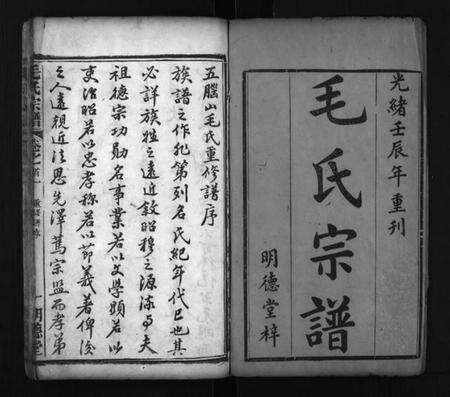 光緒壬辰年重刊
毛氏宗譜
明德堂梓
五膯山毛氏重修譜序
族譜之作孔第列名氏紀年代已也其
必詳族姓之遠近敘昭穆之源流與夫
祖德宗功勛名事業若以文學顯若以
吏治昭若以忠孝称若以節義著俾後
之人遠親近法恩先澤篤宗盟而孝弟
毛氏宗譜 卷之首
明德堂